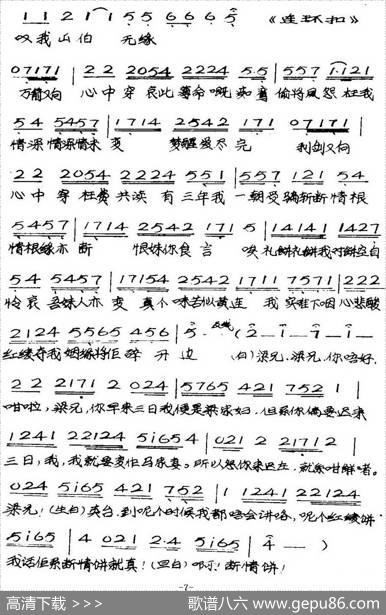 1 1 2 1 1 5 5 6 6 6 5 《连环扣》
叹我山伯 无缘
07171 | 2 2 2054 2224 5.5 | 557 1.121
万箭又向 心中穿 哀此薄命 嘅 鸳鸯 偷将 怨 枉我
5 4 5457 | 1714 2542 171 | 07171 |
情深 情源情未变 梦醒爱尽完 利剑又向
2 2 2054 2224 551 | 557 121 54
心中穿 枉费共读有三年我 一朝受骗斩断情根
5457 | 1714 2542 171 5 | 14141 1427
情根缘亦断 恨妹你食言 唉礼饼礼饼我对饼空自
54 5457 | 17154 2542 1711 7571 | 222
怜哀 妹人亦变 真个味苦似黄连 我 实难下咽心悲酸
2124 5565 456 | 5 - (2 - 1 - 7 - 1 -
红绫夺我姻缘将佢碎开边 (白)梁兄,梁兄,你唔好
2 2 2171 2 024 | 5765 421 752 1 |
咁啦,梁兄,你早来三日我便是梁家妇,但系你偏要迟来
1241 22124 5i654 | 021 2 21712 |
三日,我,我就要变作马家妻。所以怨你来迟左,就系咁解喈。
024 5i65 421 752 | 1 1241 22124
梁兄!(生白)英台,到呢个时候我都唔会讲咯,呢个红绫饼
5i65 | 4 021 2.4 5i65 | 4 - - )
我话佢系断情饼就真!(旦白)啊!断情饼!
-7-
高清下载 >>> 歌谱八六 www.gepu86.com